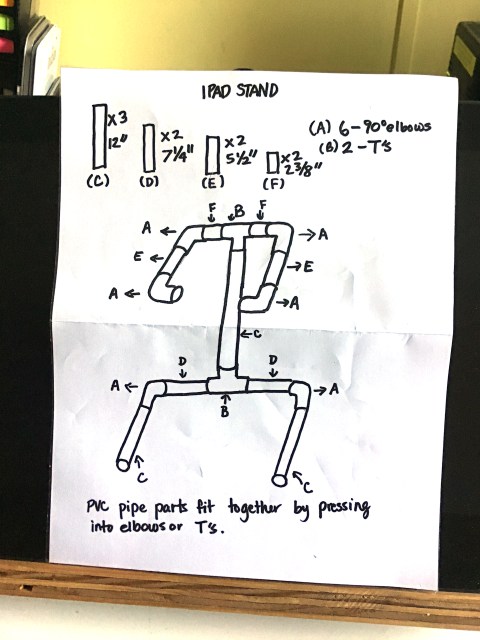 IPAD STAND
x3
12"
(C)
x2
7 1/4"
(D)
x2
5 1/2"
(E)
x2
2 3/8"
(F)
(A) 6-90° elbows
(B) 2-T's
F B F
A A
E E
A A
C
D D
A A
B
C C
PVC pipe parts fit together by pressing
into elbows or T's.